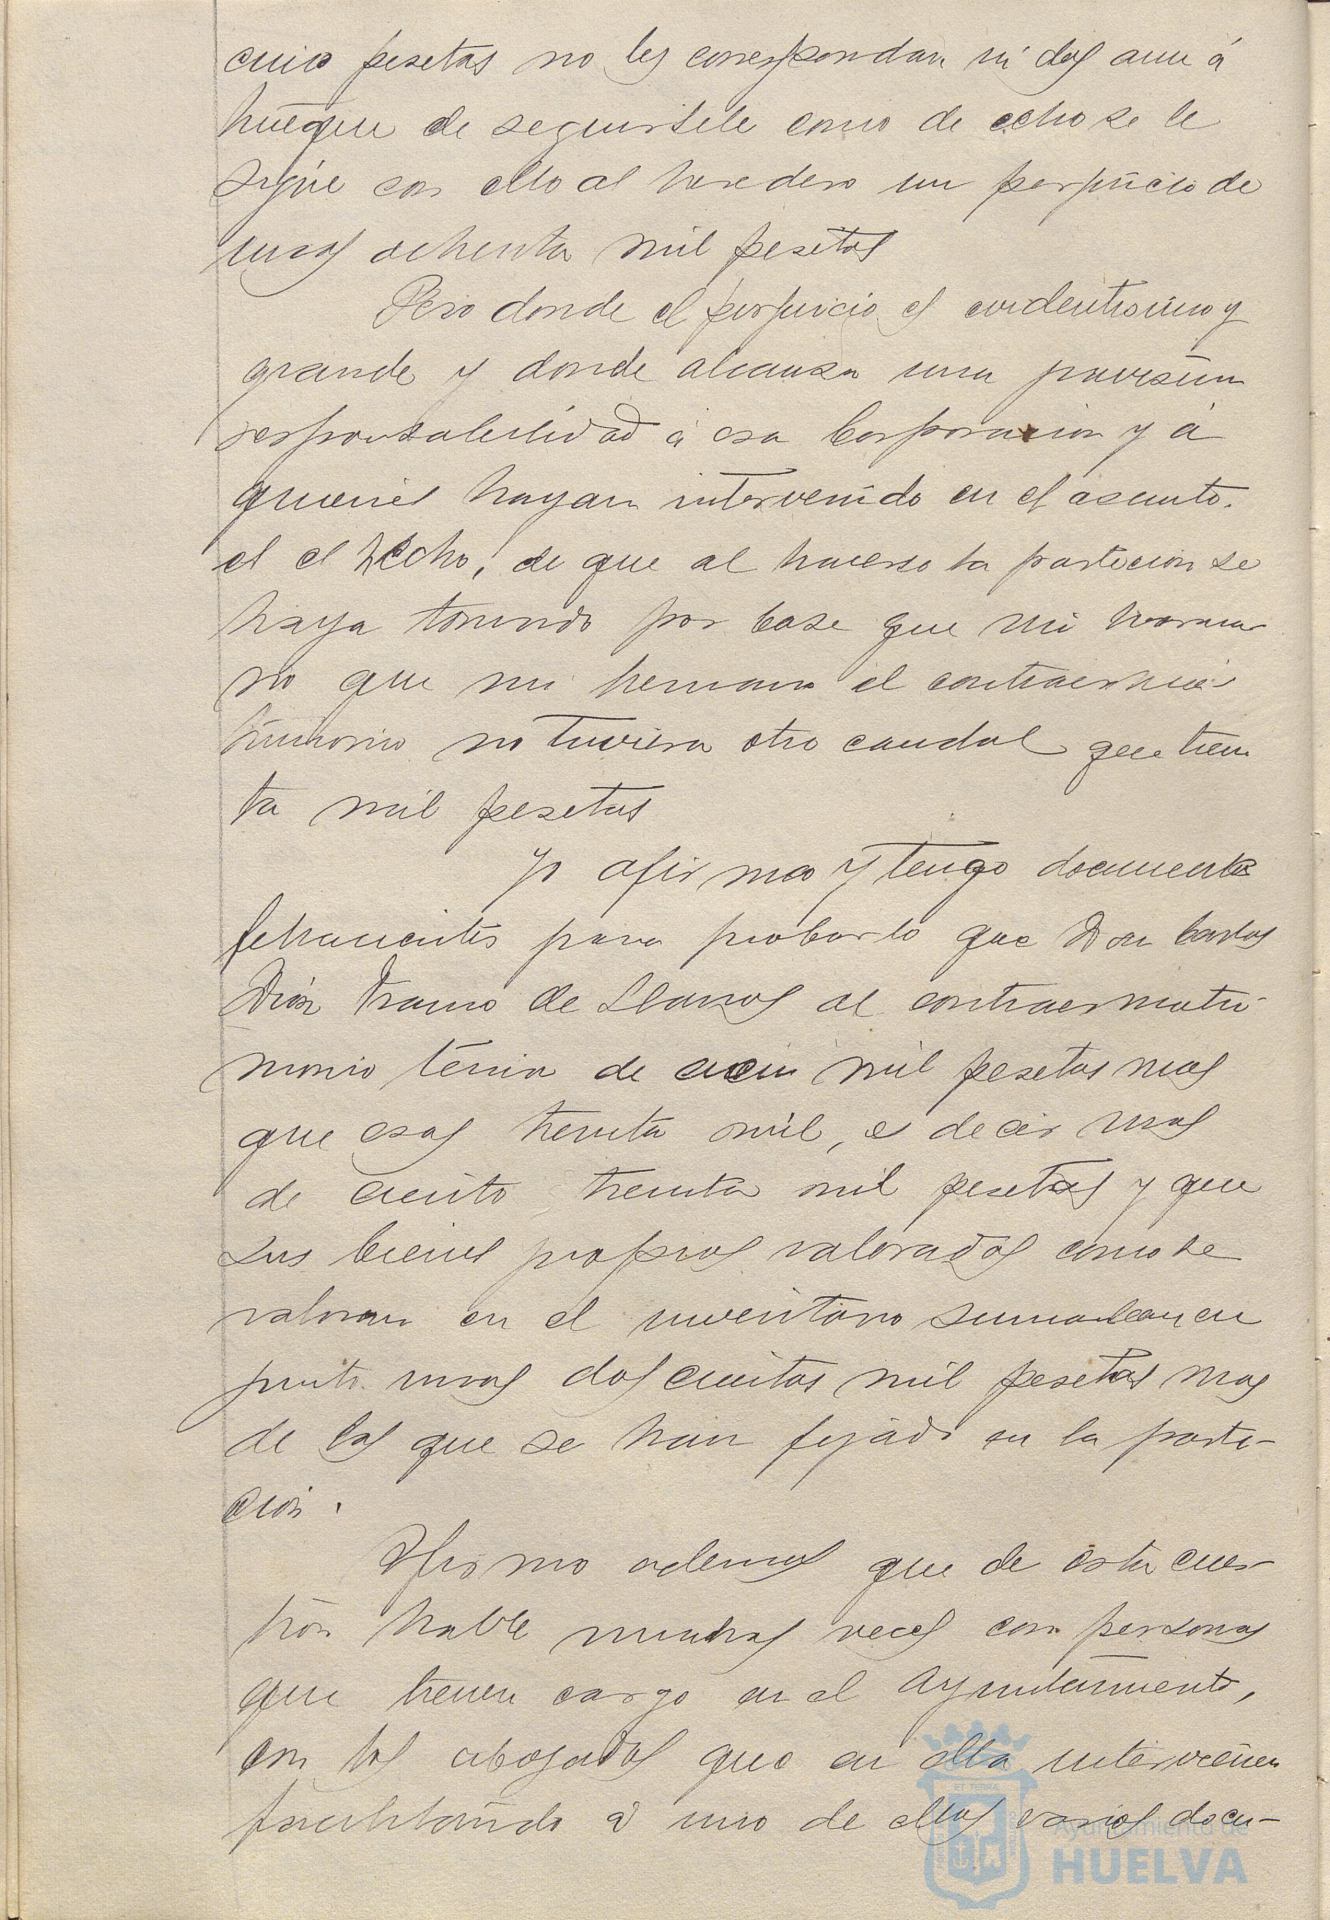 cinco pesetas no les correspondan ni dos aun á
trueque de seguirsele como de echo se le
sigue con ello al heredero un perjuicio de
unas ochenta mil pesetas
Pero donde el perjuicio es evidentisimo y
grande y donde alcanza una
responsabilidad á esa Corporacion y á
quienes hayan intervenido en el asunto.
es el hecho, de que al hacerse la particion se
haya tomado por base que mi herma
no que mi hermano al contraer ma
trimonio no tuviera otro caudal que trein
ta mil pesetas
Yo afirmo y tengo documentos
fehacientes para probarlo que Don Carlos
Diaz Franco de Llanos al contraer matri-
monio tenia de cien mil pesetas mas
que esas treinta mil, es decir mas
de ciento treinta mil pesetas y que
sus bienes propios valorados como se
valoran en el inventario sumaban en
junto unas doscientas mil pesetas mas
de las que se han fijado en la parti-
cion.
Afirmo ademas que de esta cues-
tion hable muchas veces con personas
que tienen cargo en el Ayuntamiento,
con los abogados que en ella intervienen
facilitando á uno de ellos varios docu-
ET TERRA
Ayuntamiento de
HUELVA